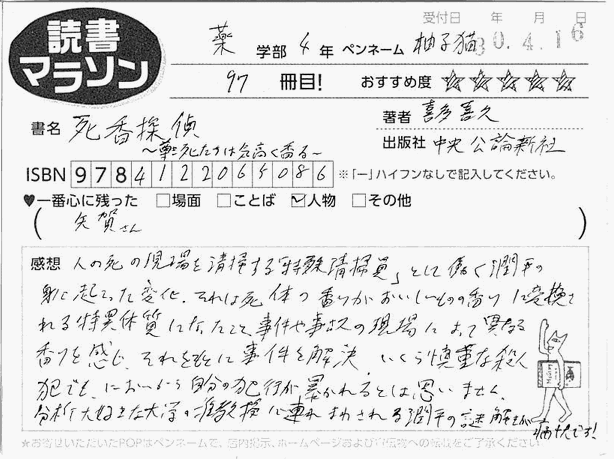 読書
マラソン
受付日 年 月 日
30.4.16
薬 学部 4 年 ペンネーム 柚子猫
97 冊目! おすすめ度 ☆☆☆☆☆
書名 死香探偵
～尊き死たちは気高く香る～
著者 喜多喜久
出版社 中央公論新社
ISBN 9784122065086 ※「-」ハイフンなしで記入してください。
♥一番心に残った □場面 □ことば ☑人物 □その他
( 矢賀さん )
感想 人の死の現場を清掃する「特殊清掃員」として働く潤平の
身に起こった変化。それは死体の香りがおいしいものの香りに変換さ
れる特異体質になったこと。事件や事故の現場によって異なる
香りを感じ、それをもとに事件を解決。いくら慎重な殺人
犯でも、においから自分の犯行が暴かれるとは思いません。
分析大好きな大学の准教授に連れまわされる潤平の謎解きが
痛快です!
☆お寄せいただいたPOPはペンネームで、店内掲示、ホームページおよび宣伝物への転載をご了承ください